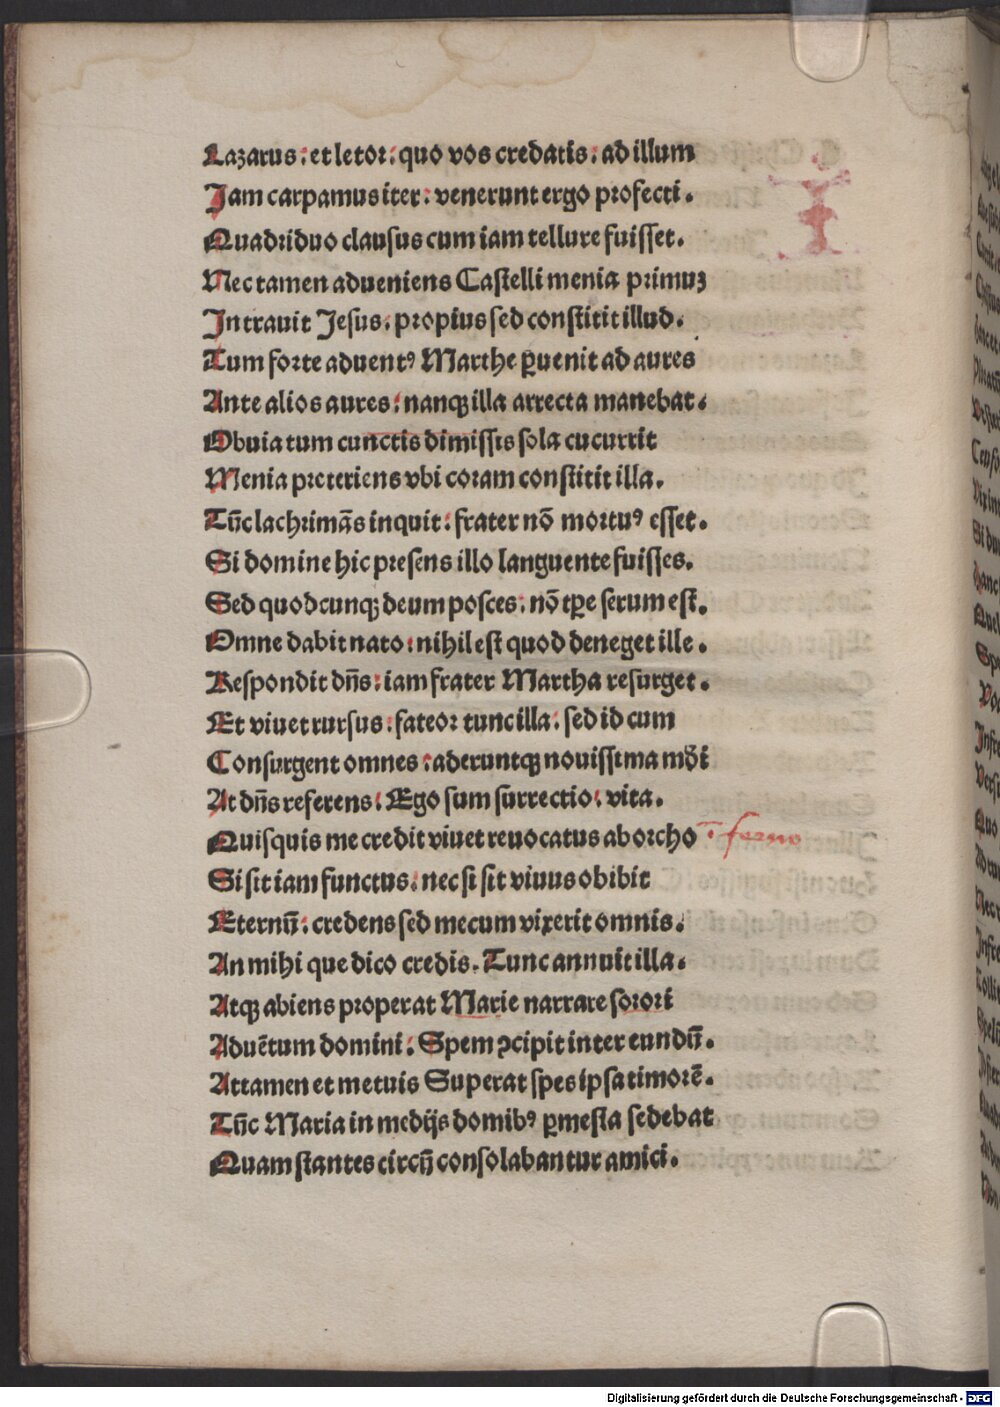 Lazarus: et letor: quo vos credatis: ad illum
Jam carpamus iter: venerunt ergo profecti.
Quadriduo clausus cum iam tellure fuisset.
Nec tamen adueniens Castelli menia primuʒ
Intrauit Jesus. propius sed constitit illud.
Tum forte aduentꝰ Marthe ꝑuenit ad aures
Ante alios aures: nanqꝫ illa arrecta manebat.
Obuia tum cunctis dimissis sola cucurrit
Menia preteriens vbi coram constitit illa.
Tūc lachrimãs inquit: frater nō mortuꝰ esset.
Si domine hic presens illo languente fuisses.
Sed quodcunqꝫ deum posces: nō tꝑe serum est.
Omne dabit nato: nihil est quod deneget ille.
Respondit dñs: iam frater Martha resurget.
Et viuet rursus: fateor tunc illa: sed id cum
Consurgent omnes: aderuntqꝫ nouissima mūdi
At dñs referens: Ego sum surrectio: vita.
Quisquis me credit viuet reuocatus ab orcho ī ferno
Si sit iam functus: nec si sit viuus obibit
Eternū: credens sed mecum vixerit omnis.
An mihi que dico credis. Tunc annuit illa.
Atqꝫ abiens properat Marie narrare sorori
Aduētum domini. Spem ꝯcipit inter eundū.
Attamen et metuis Superat spes ipsa timorē.
Tūc Maria in medijs domibꝰ ꝑmesta sedebat
Quam stantes circū consolabantur amici.
Digitalisierung gefördert durch die Deutsche Forschungsgemeinschaft - DFG